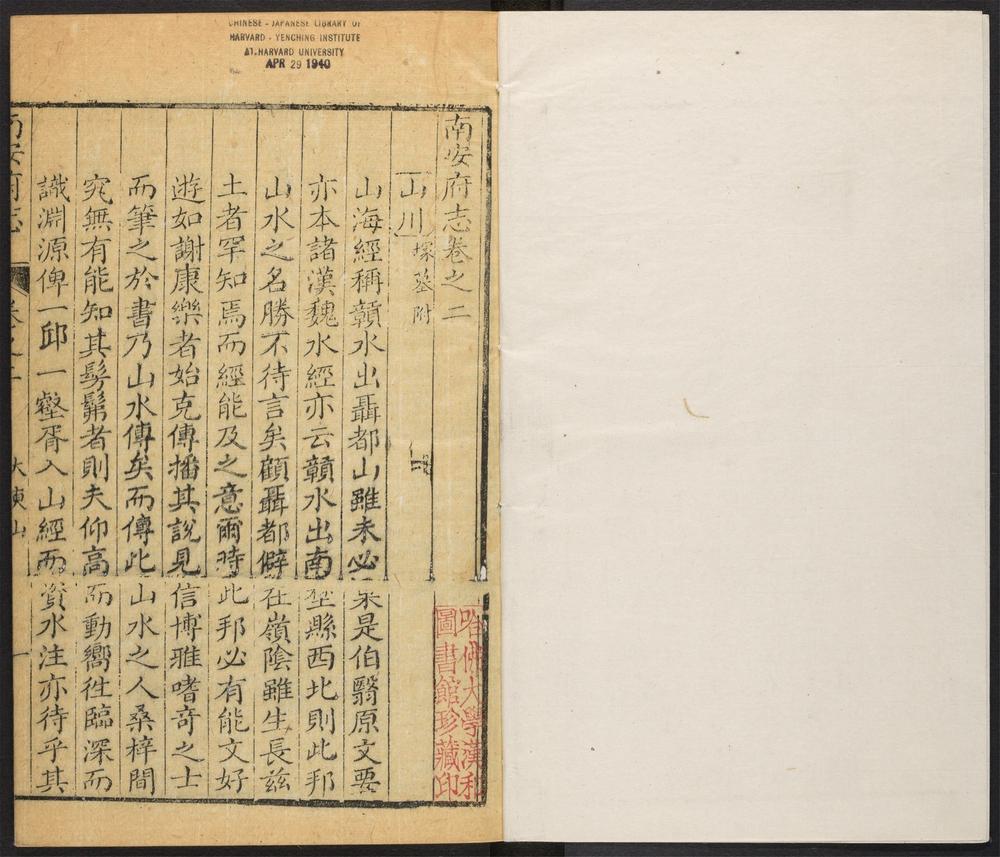 CHINESE - JAPANESE LIBRARY OF
HARVARD - YENCHING INSTITUTE
AT HARVARD UNIVERSITY
APR 29 1940
南安府志卷之二
山川 塚墓附
山海經稱贛水出聶都山雖未必果是伯翳原文要
亦本諸漢魏水經亦云贛水出南埜縣西北則此邦
山水之名勝不待言矣顧聶都僻在嶺陰雖生長茲
土者罕知焉而經能及之意爾時此邦必有能文好
遊如謝康樂者始克傳播其說見信博雅嗜奇之士
而筆之於書乃山水傳矣而傳此山水之人桑梓間
究無有能知其髣髴者則夫仰高而動嚮徃臨深而
識淵源俾一邱一壑胥入山經而資水注亦待乎其
南安府志 卷之二 大庾山 一
哈佛大學漢和
圖書館珍藏印